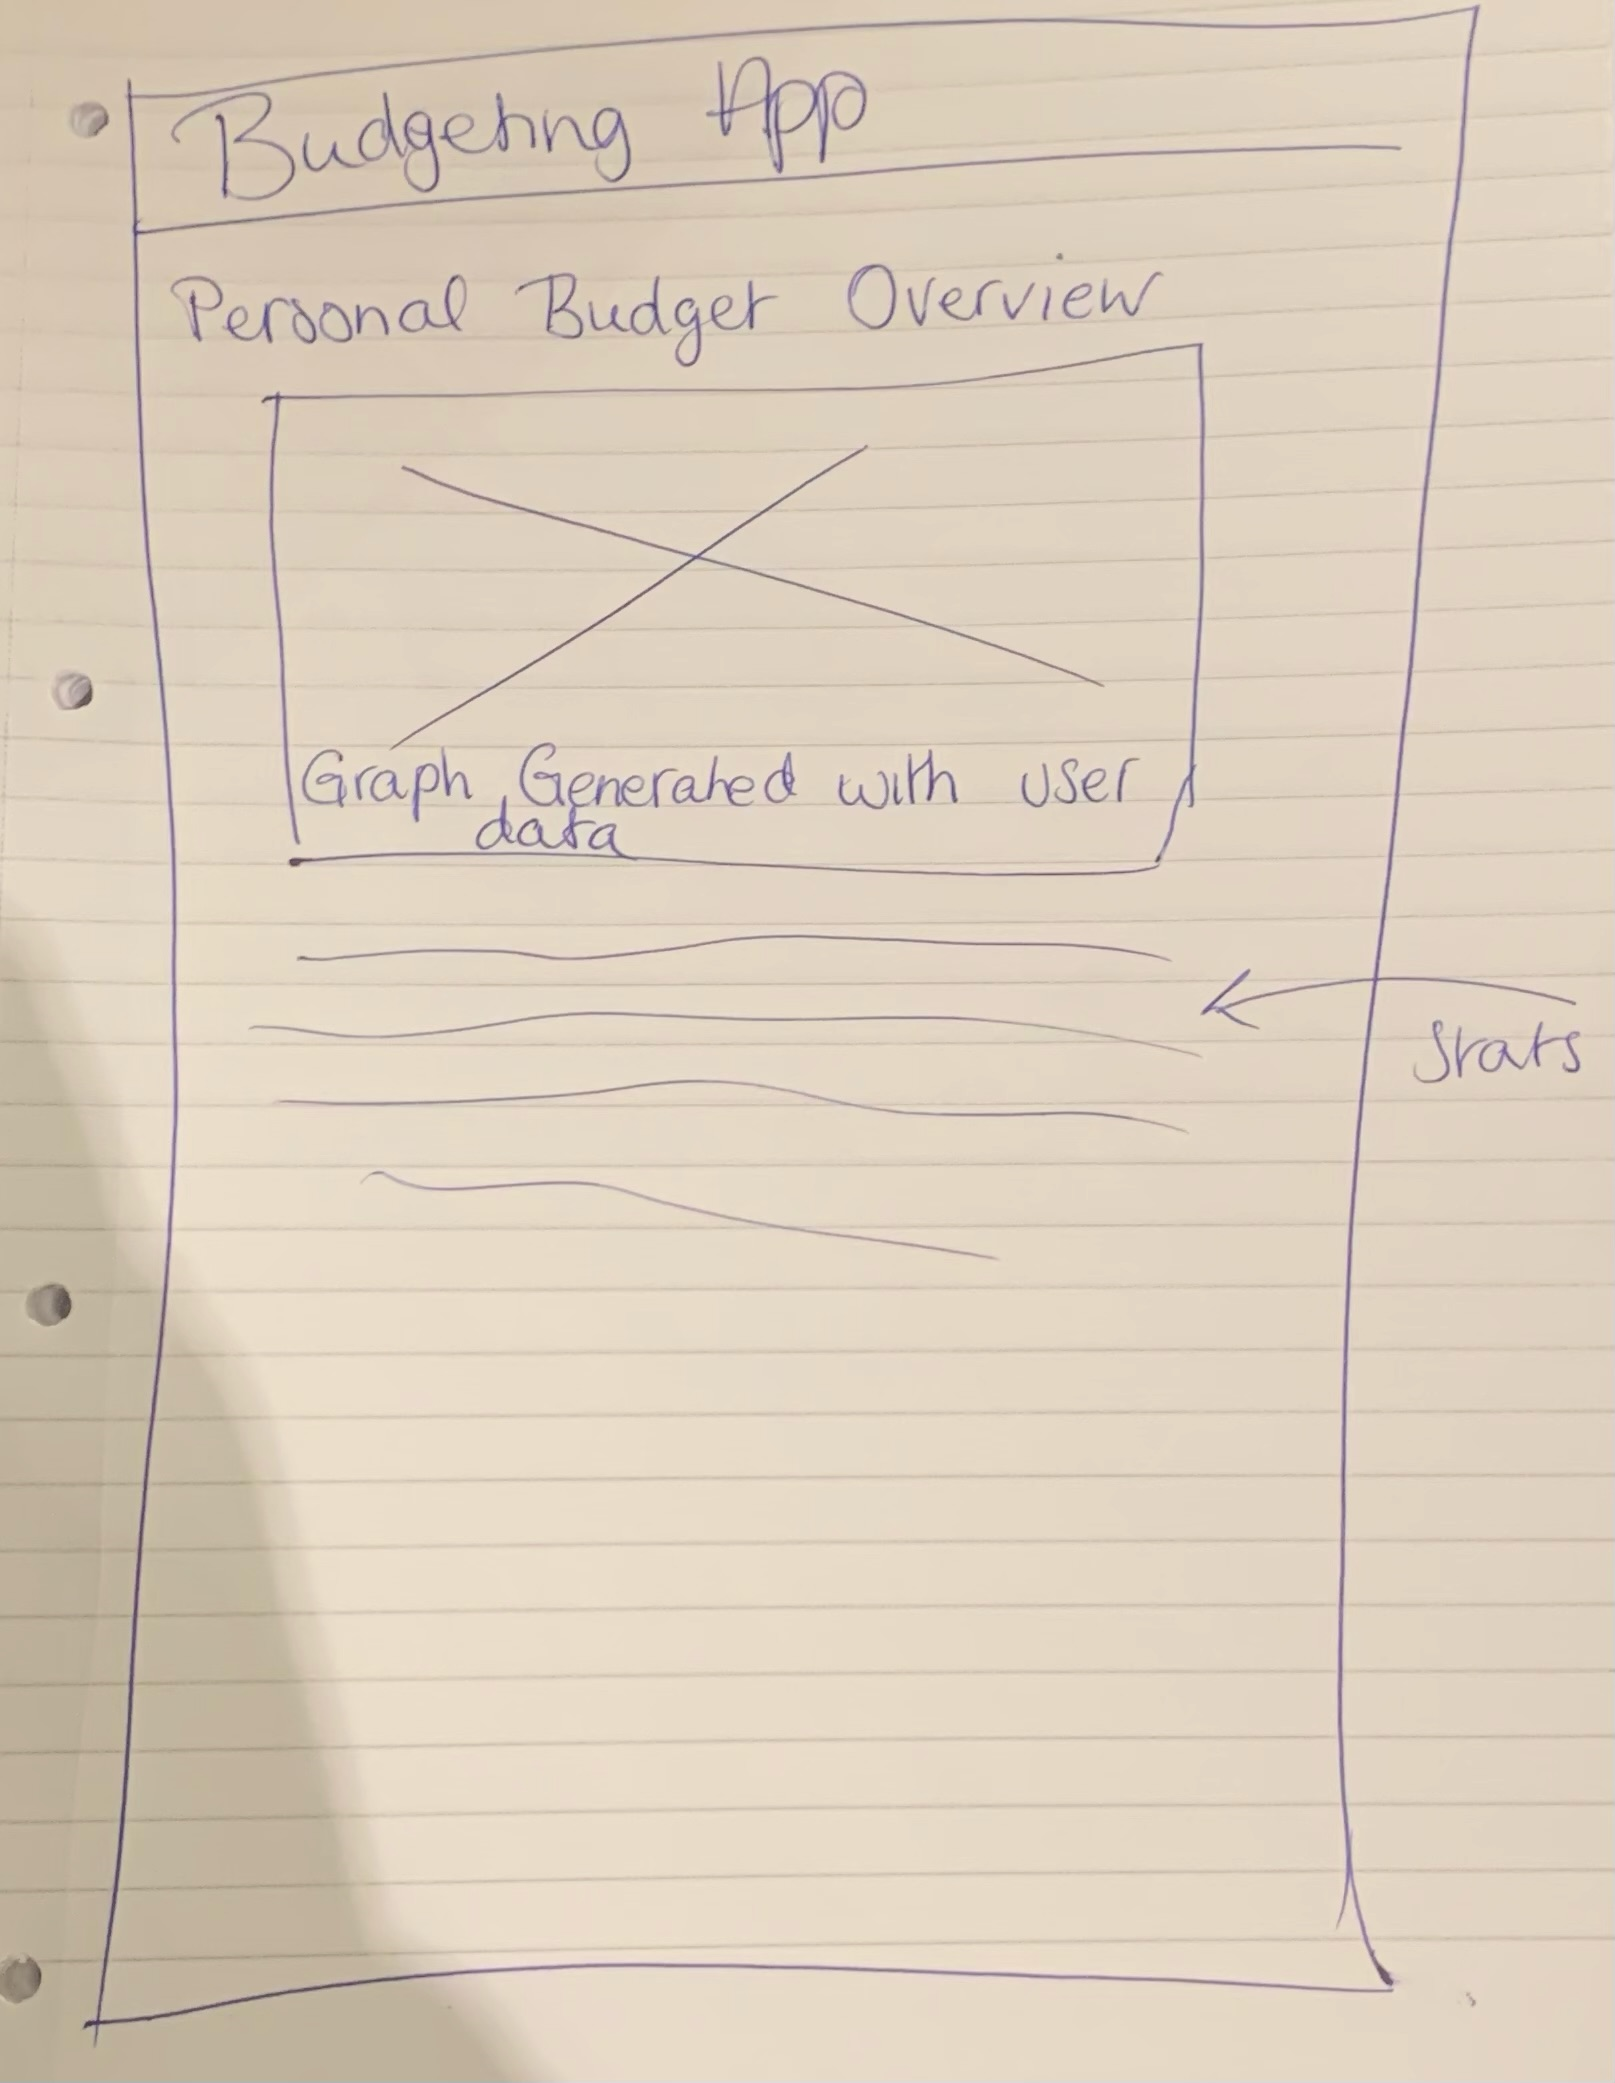 Budgeting App
Personal Budget Overview
Graph Generated with user
data
Stats